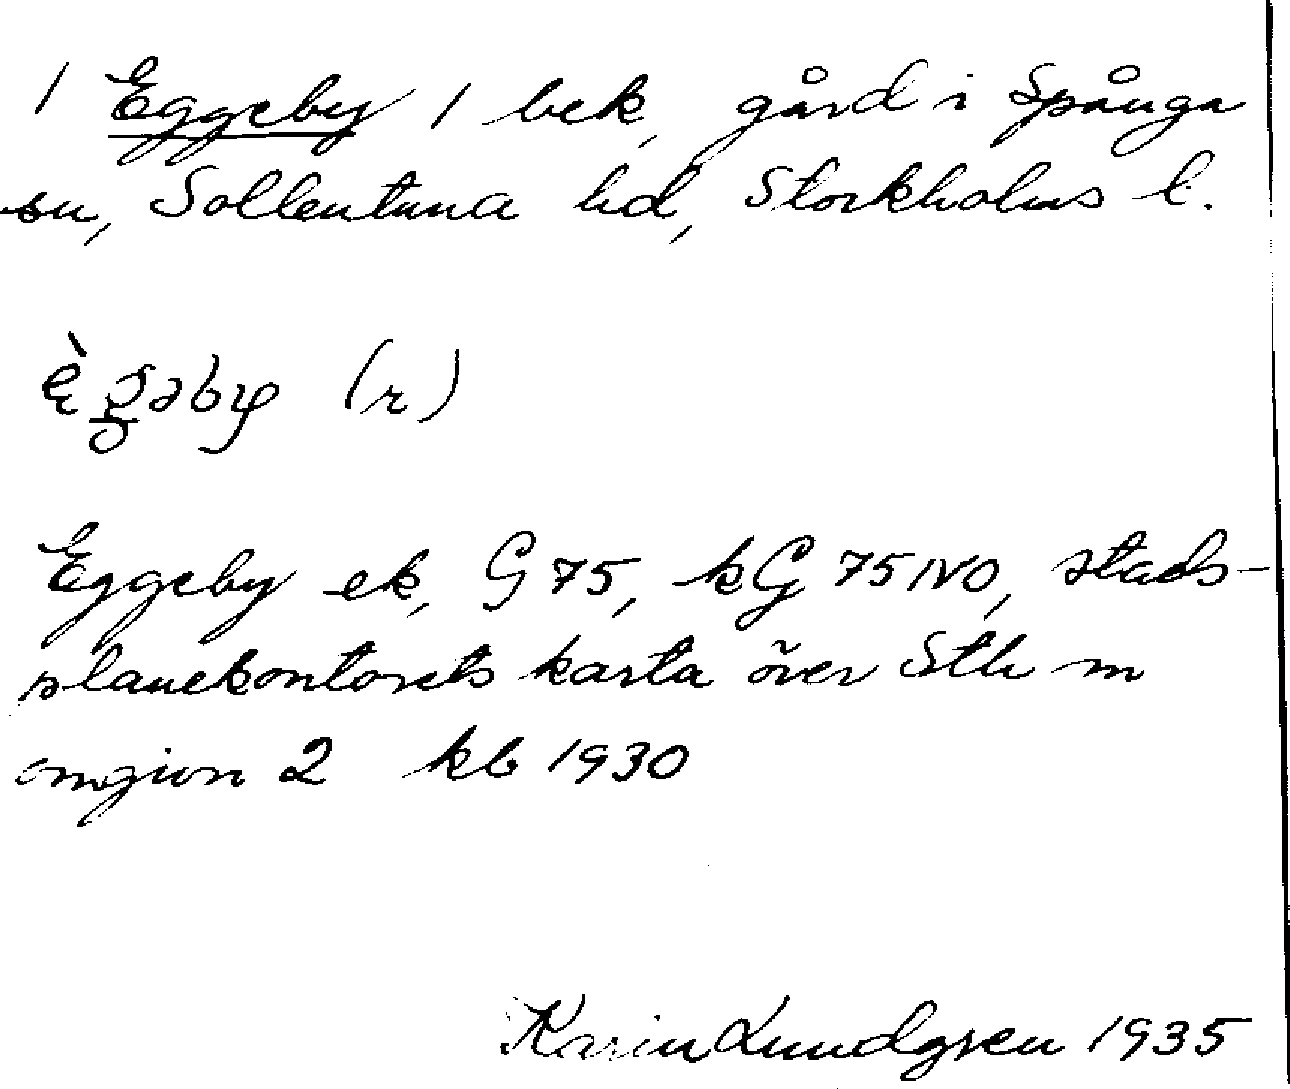 / Eggeby / bek, gård i Spånga
sn, Sollentuna hd, Stockholms l.
ę̀g̲əby (r)
Eggeby ek, G 75, kG 75 NO, stads-
planekontorets karta över Sth m
omgivn 2 kb 1930
Karin Lundgren 1935